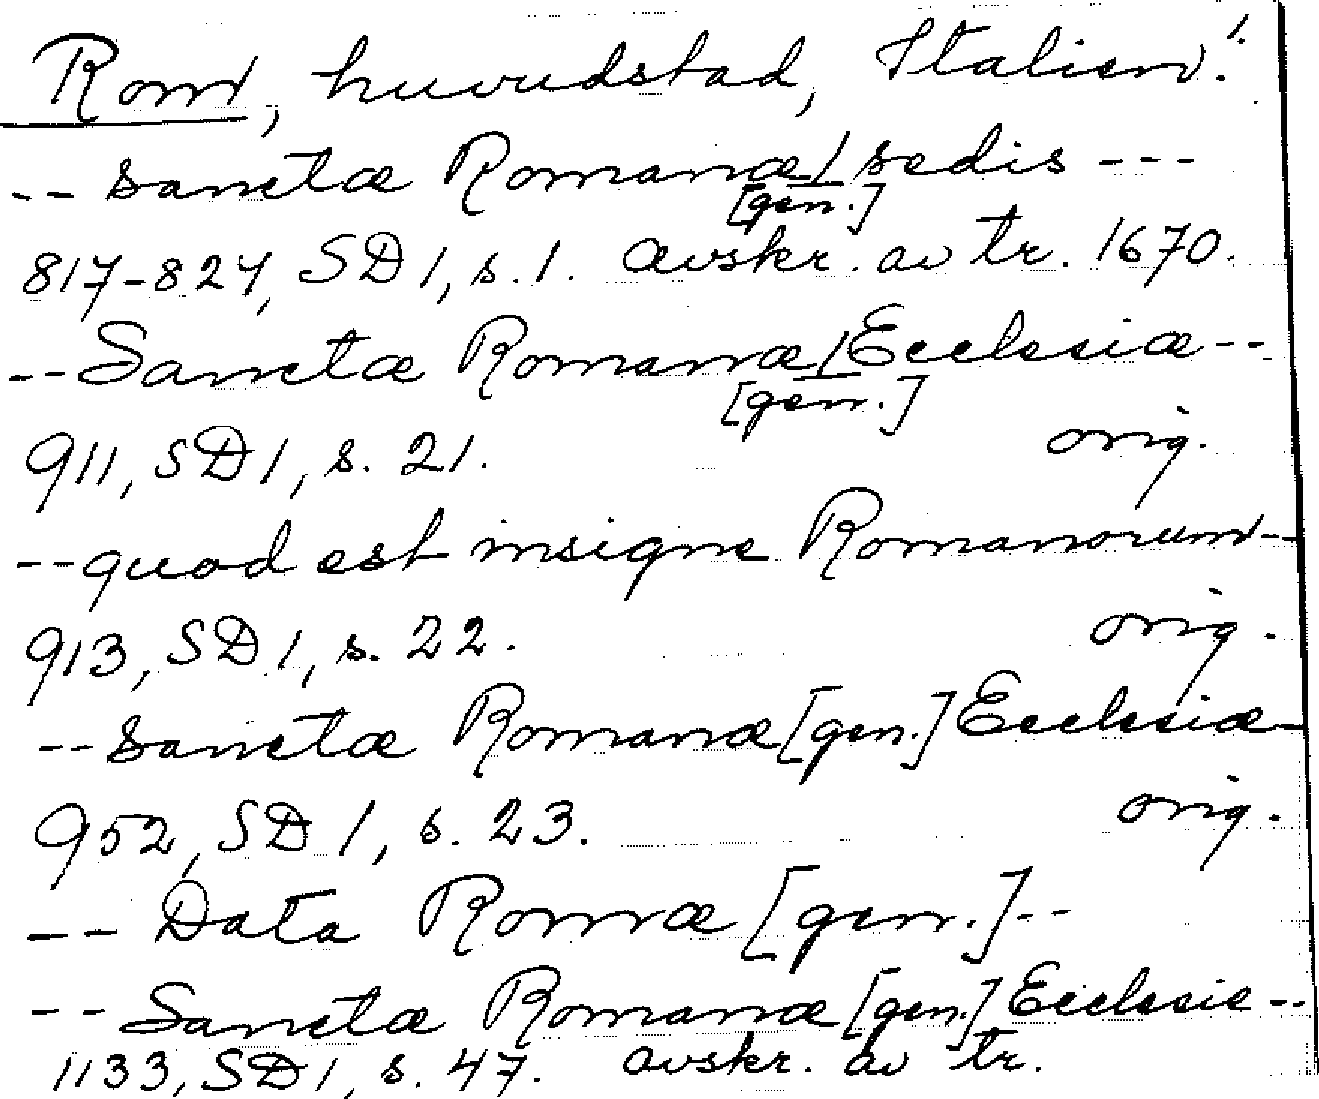 Rom, huvudstad, Italien. 1.
-- sanctæ Romanæ/ sedis ---
[gen.]
817-824, SD 1, s. 1. avskr. av tr. 1670.
-- Sanctæ Romanæ/ Ecclesiæ --
[gen.]
911, SD 1, s. 21. orig.
-- quod est insigne Romanorum --
913, SD 1, s. 22. orig.
-- sanctæ Romanæ [gen.] Ecclesiæ --
952, SD 1, s. 23. orig.
-- Data Romæ [gen.] --
-- Sanctæ Romanæ [gen.] Ecclesie --
1133, SD 1, s. 47. avskr. av tr.